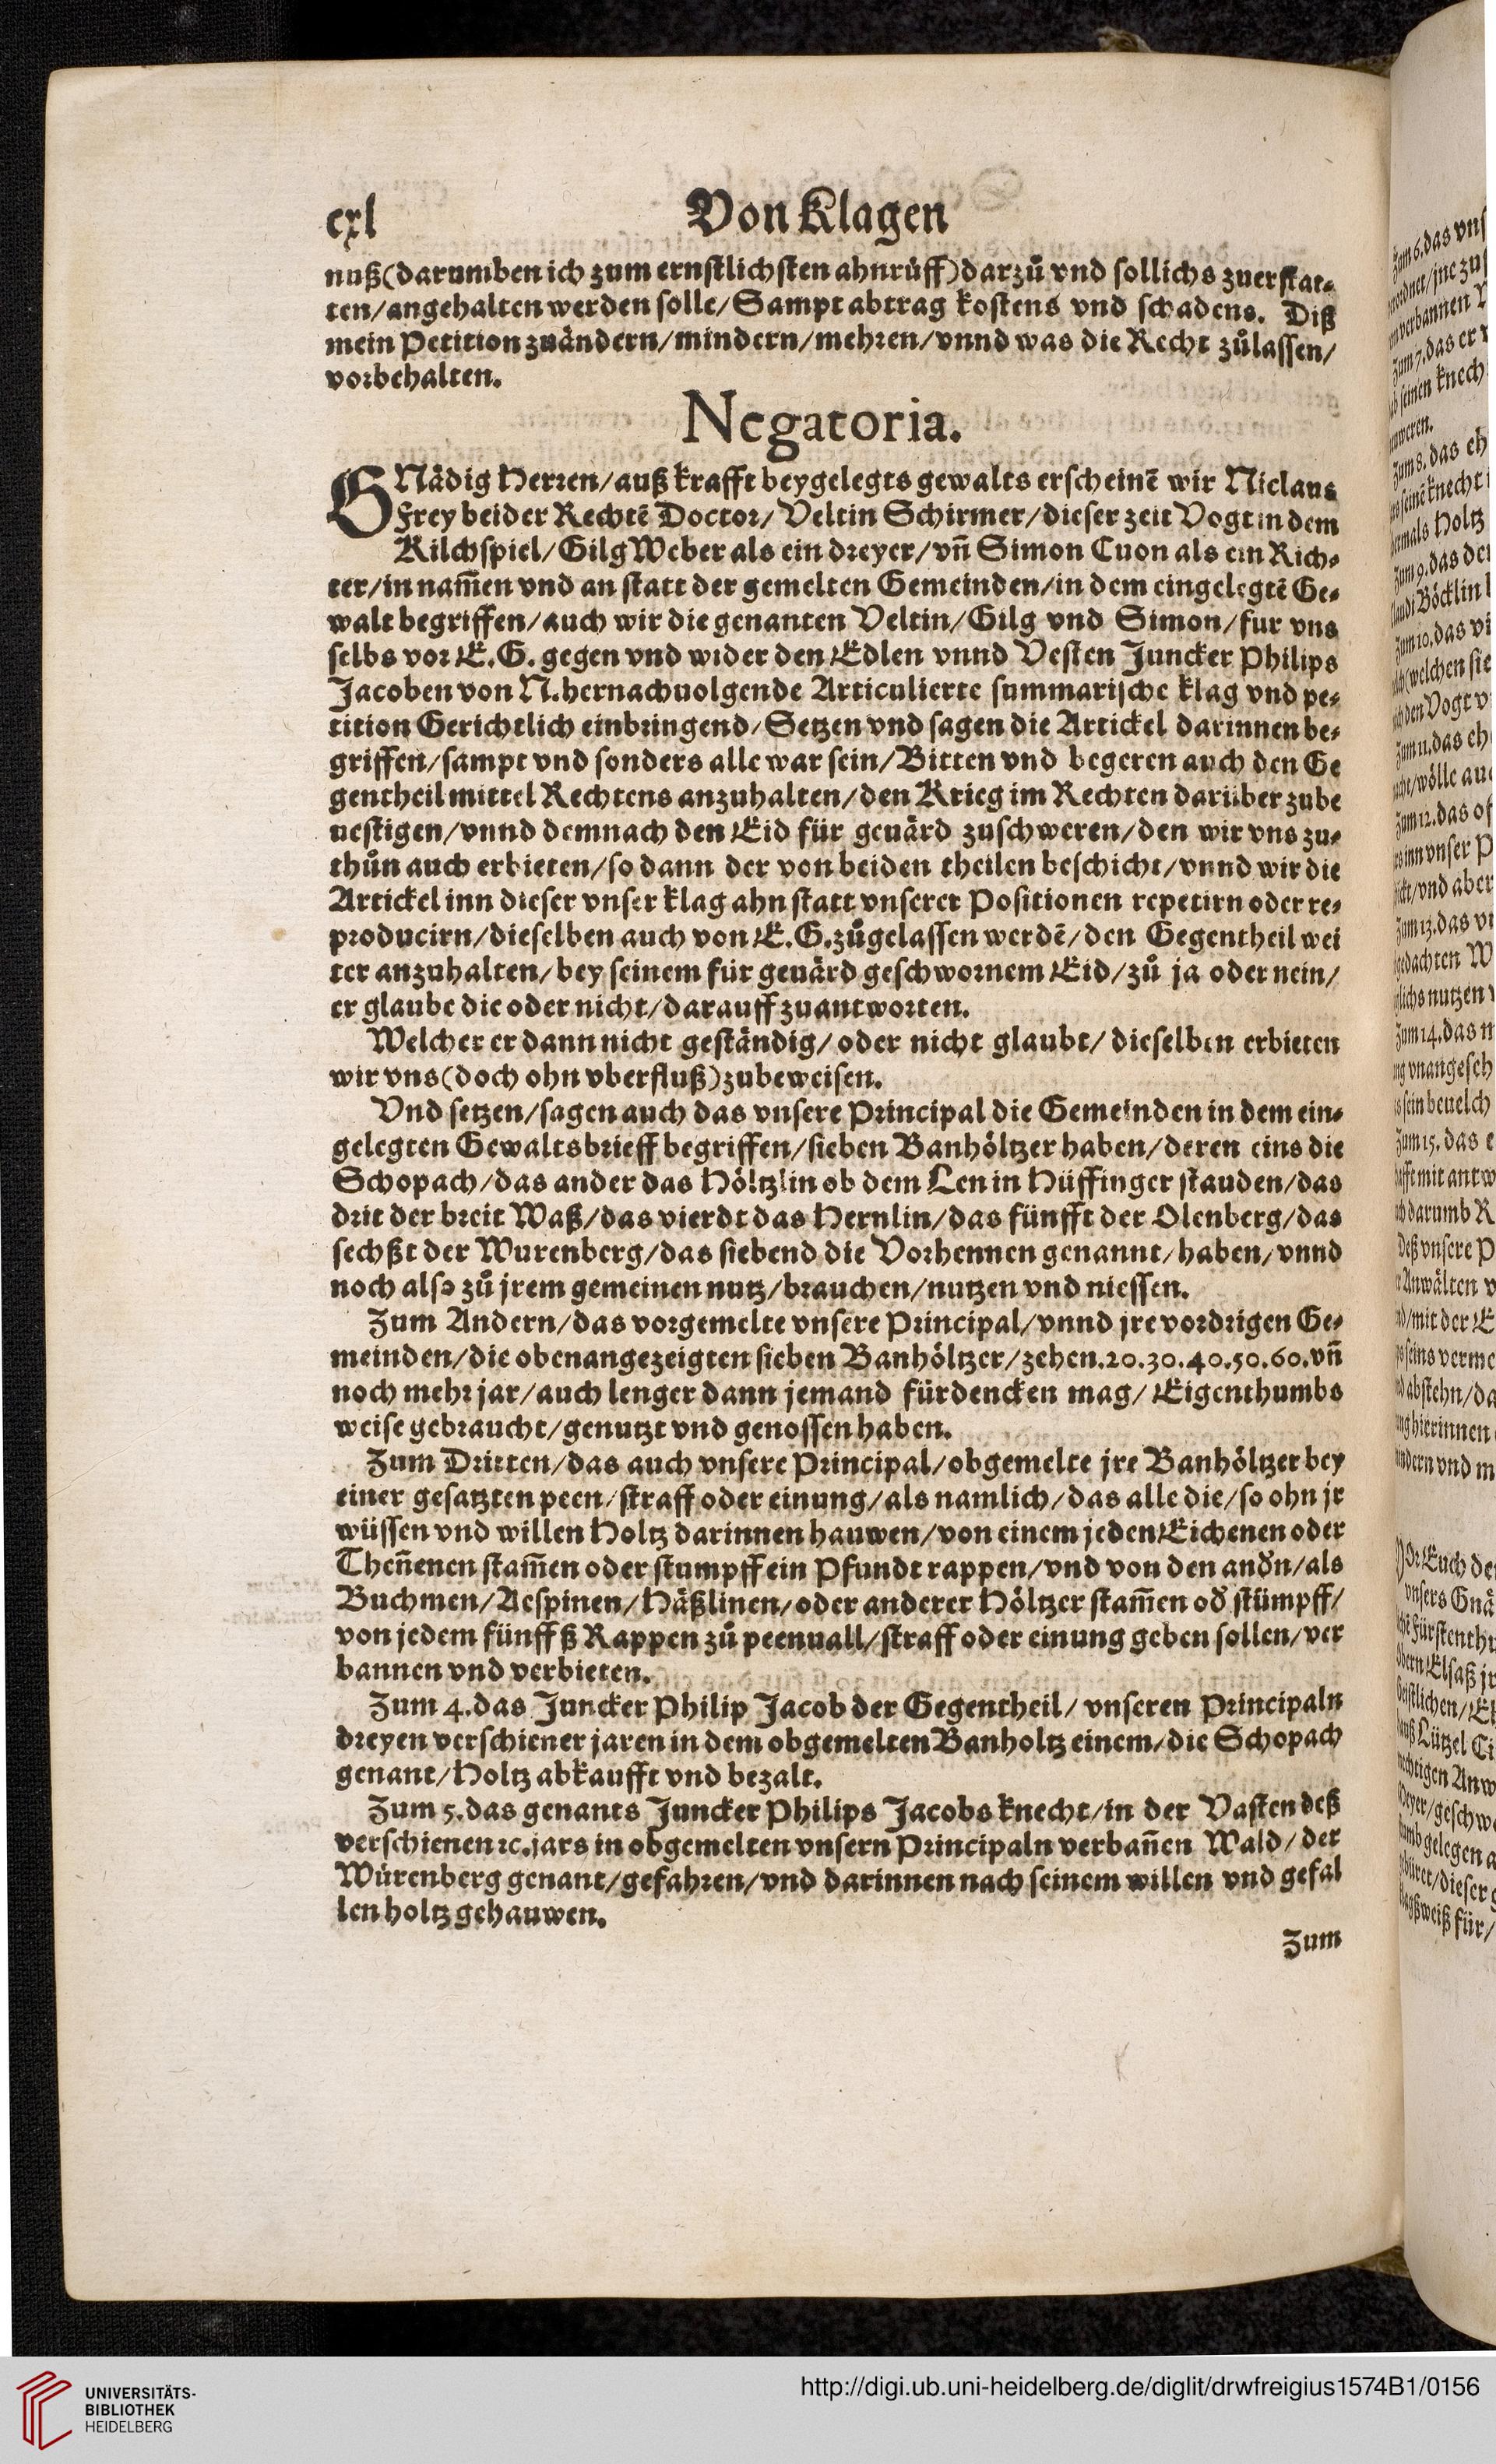 cxl
Von Klagen
nuß(darumben ich zum ernstlichsten ahnrüff)darzů vnd sollichs zuerstat-
ten/angehalten werden solle/Sampt abtrag kostens vnd schadens. Diß
mein Petition zuändern/mindern/mehren/vnnd was die Recht zůlassen/
vorbehalten.
Negatoria.
GNädig Herren/auß krafft beygelegts gewalts erscheinē wir Niclaus
Frey beider Rechtē Doctor/Veltin Schirmer/dieser zeit Vogt in dem
Kilchspiel/Gilg Weber als ein dreyer/vn̄ Simon Cuon als ein Rich-
ter/in nam̄en vnd an statt der gemelten Gemeinden/in dem eingelegtē Ge-
walt begriffen/auch wir die genanten Veltin/Gilg vnd Simon/fur vns
selbs vor E.G. gegen vnd wider den Edlen vnnd Vesten Juncker Philips
Jacoben von N.hernachuolgende Articulierte summarische klag vnd pe-
tition Gerichtlich einbringend/Setzen vnd sagen die Artickel darinnen be-
griffen/sampt vnd sonders alle war sein/Bitten vnd begeren auch den Ge
gentheil mittel Rechtens anzuhalten/den Krieg im Rechten darüber zube
uestigen/vnnd demnach den Eid für geuärd zuschweren/den wir vns zu-
thůn auch erbieten/so dann der von beiden theilen beschicht/vnnd wir die
Artickel inn dieser vnser klag ahn statt vnserer Positionen repetirn oder re-
producirn/dieselben auch von E.G.zůgelassen werdē/den Gegentheil wei
ter anzuhalten/bey seinem für geuärd geschwornem Eid/zů ja oder nein/
er glaube die oder nicht/darauff zuantworten.
Welcher er dann nicht geständig/oder nicht glaubt/dieselben erbieten
wir vns(doch ohn vberfluß)zubeweisen.
Vnd setzen/sagen auch das vnsere Principal die Gemeinden in dem ein-
gelegten Gewaltsbrieff begriffen/sieben Banhöltzer haben/deren eins die
Schopach/das ander das Höltzlin ob dem Len in Hüffinger stauden/das
drit der breit Waß/das vierdt das Hernlin/das fünfft der Olenberg/das
sechßt der Wurenberg/das siebend die Vorhennen genannt/haben/vnnd
noch also zů jrem gemeinen nutz/brauchen/nutzen vnd niessen.
Zum Andern/das vorgemelte vnsere Principal/vnnd jre vordrigen Ge-
meinden/die obenangezeigten sieben Banhöltzer/zehen.20.30.40.50.60.vn̄
noch mehr jar/auch lenger dann jemand fürdencken mag/Eigenthumbs
weise gebraucht/genutzt vnd genossen haben.
Zum Dritten/das auch vnsere Principal/obgemelte jre Banhöltzer bey
einer gesatzten peen/straff oder einung/als namlich/das alle die/so ohn jr
wüssen vnd willen Holtz darinnen hauwen/von einem jeden Eichenen oder
Then̄enen stam̄en oder stumpff ein Pfundt rappen/vnd von den and̄n/als
Buchmen/Aespinen/Häßlinen/oder anderer Höltzer stam̄en od̄ stümpff/
von jedem fünff ß Rappen zů peenuall/straff oder einung geben sollen/ver
bannen vnd verbieten.
Zum 4.das Juncker Philip Jacob der Gegentheil/vnseren Principaln
dreyen verschiener jaren in dem obgemelten Banholtz einem/die Schopach
genant/Holtz abkaufft vnd bezalt.
Zum 5.das genants Juncker Philips Jacobs knecht/in der Vasten deß
verschienen ꝛc.jars in obgemelten vnsern Principaln verban̄en Wald/der
Würenberg genant/gefahren/vnd darinnen nach seinem willen vnd gefal
len holtz gehauwen.
Zum
UNIVERSITÄTS-
BIBLIOTHEK
HEIDELBERG
http://digi.ub.uni-heidelberg.de/diglit/drwfreigius1574B1/0156